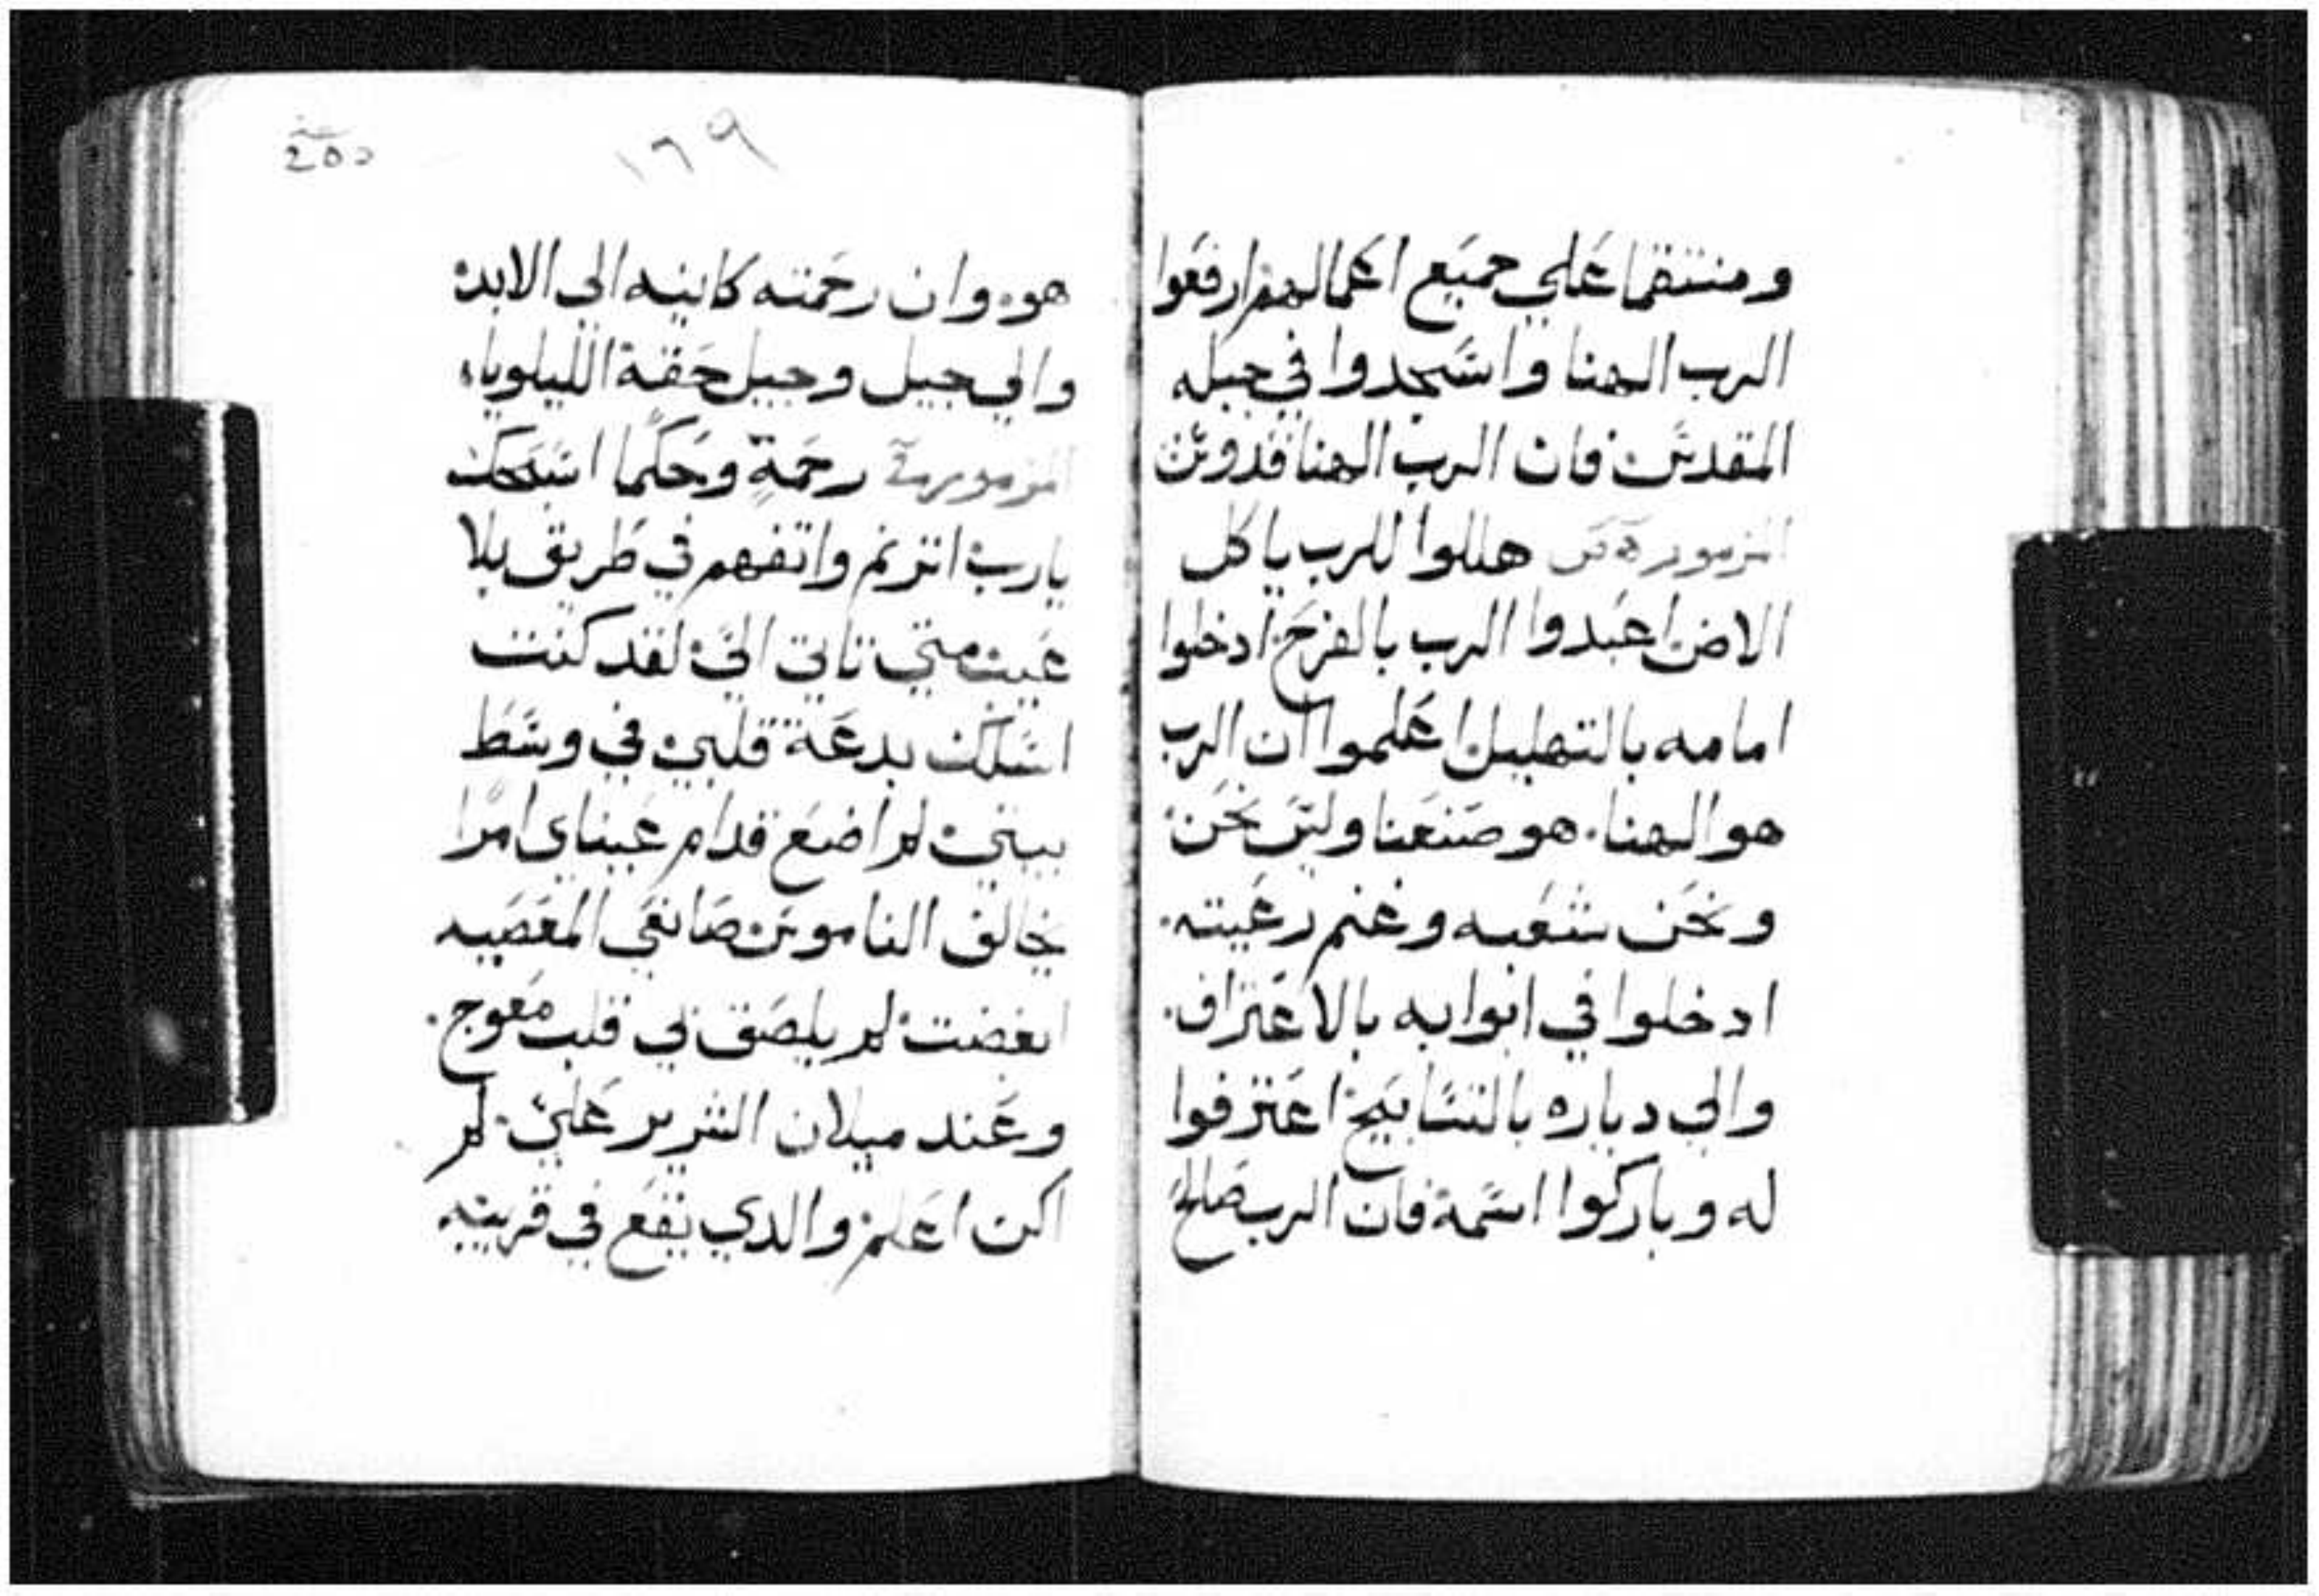 ومنتقما علي جميع اعمالهم ارفعوا
الرب الهنا واسجدوا في جبله
المقدس فان الرب الهنا قدوس
المزمور هللوا للرب يا كل
الارض اعبدوا الرب بالفرح ادخلوا
امامه بالتهليل اعلموا ان الرب
هو الهنا. هو صنعنا وليس نحن
ونحن شعبه وغنم رعيته.
ادخلوا في ابوابه بالاعتراف.
والي دياره بالتسابيح اعترفوا
له وباركوا اسمه فان الرب صالح
١٦٩
هو وان رحمته كاينه الي الابد
والي جيل وجيل حقه الليلوياء
المزمور رحمة وحكما اسبحك
يارب اترنم واتفهم في طريق بلا
عيب متي تاتي الي لقد كنت
اسلك بدعة قلبي في وسط
بيتي لم اضع قدام عيناي امرا
يخالف الناموس صانعي المعصيه
ابغضت لم يلصق بي قلب معوج.
وعند ميلان الشرير علي لم
اكن اعلم والدي يقع في قريبه